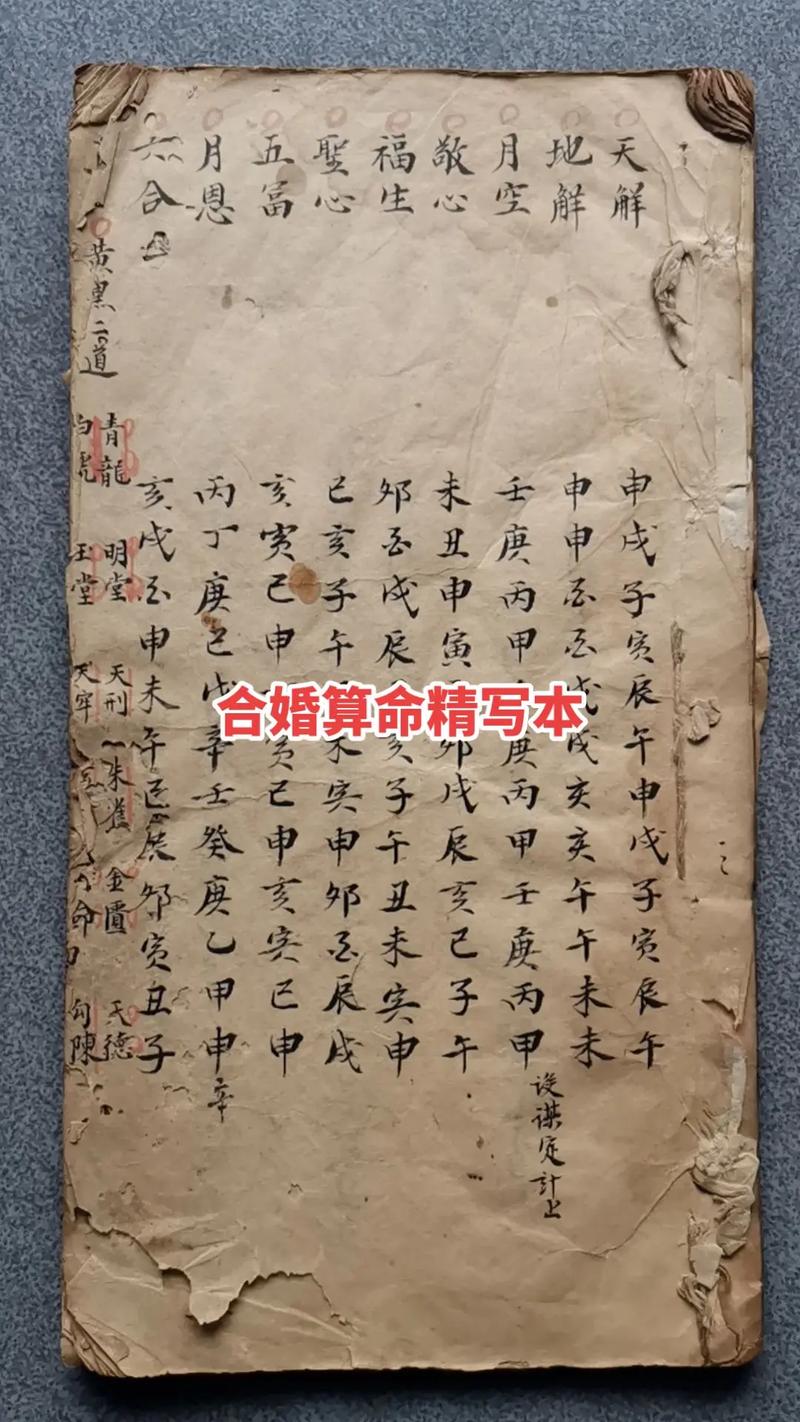 天解 申戌子寅辰午申戌子寅辰午
地解 申申酉酉戌戌亥亥午午未未
月空 壬庚丙甲庚丙甲壬庚丙甲 設謀定計上
敬心 未丑申寅卯戌辰亥巳子午
福生 卯酉戌辰子午丑未寅申
聖心 巳亥子午未寅申卯酉辰戌
五冨 亥寅巳申寅巳申亥寅巳申
月恩 丙丁庚己戊辛壬癸庚乙甲申辛
六合 亥戌酉申未午巳辰卯寅丑子
黄黑二道
青龍 明堂 天刑 朱雀 金匱 天德
白虎 玉堂 天牢 命 勾陳
合婚算命精写本